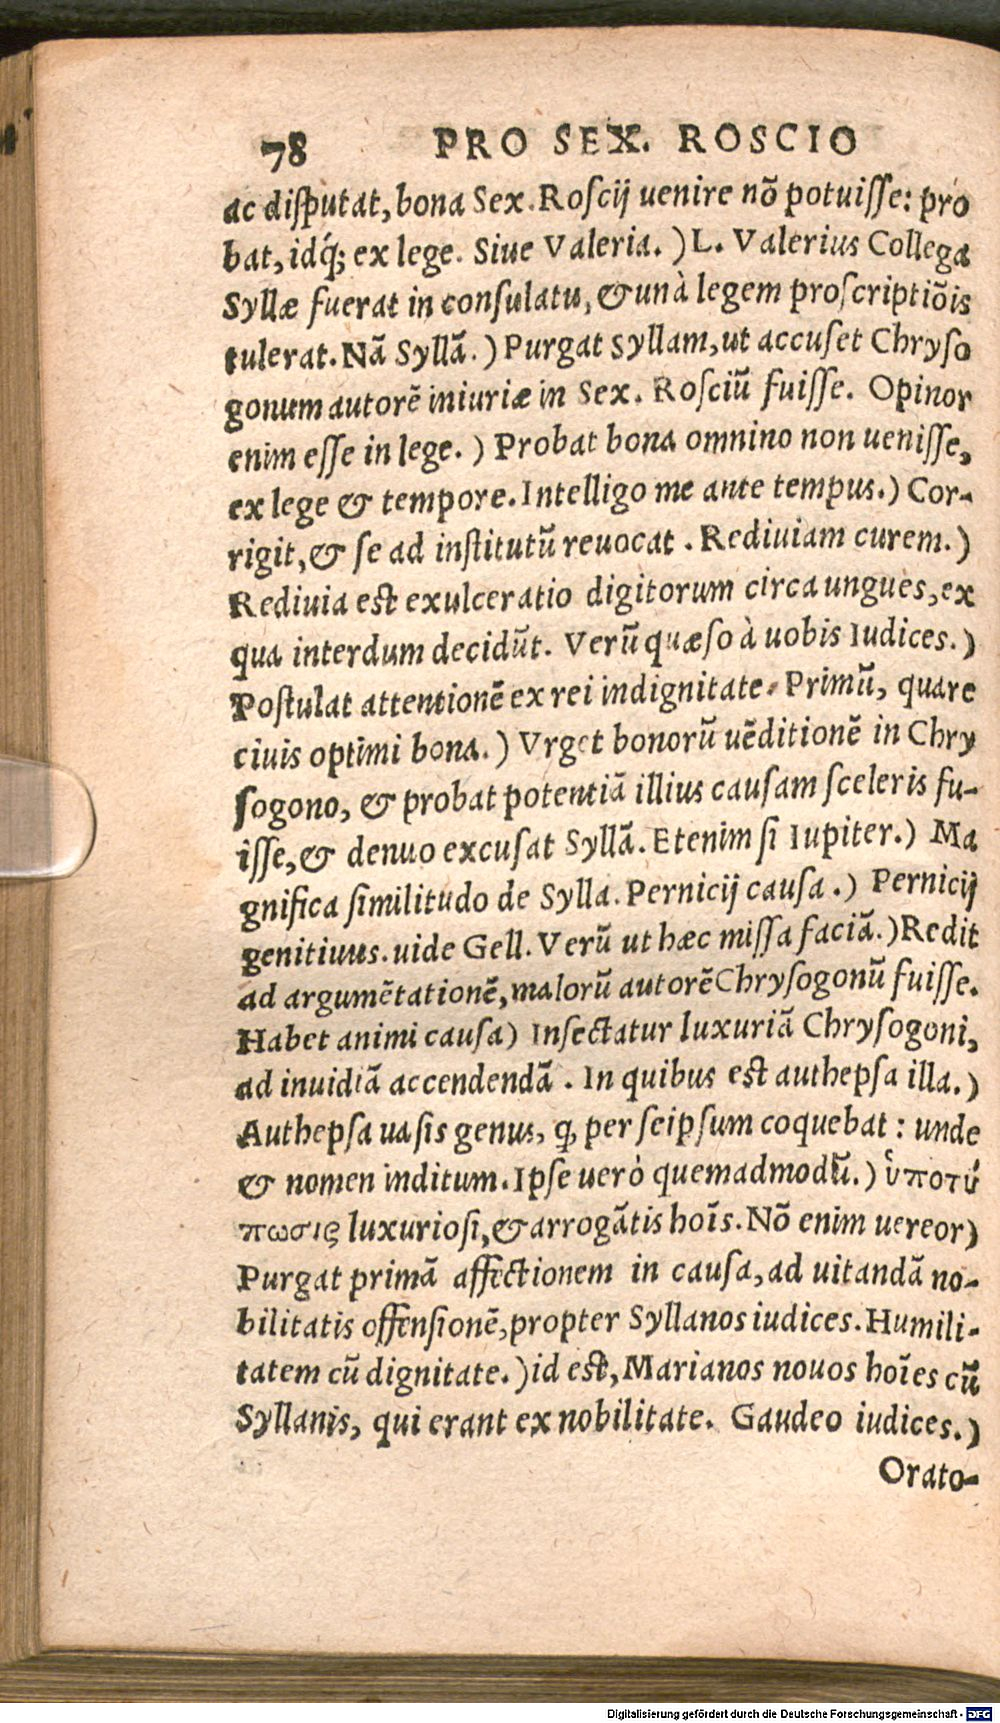 78 PRO SEX. ROSCIO
ac disputat, bona Sex. Roscij uenire nō potuisse: pro
bat, idq́; ex lege. Siue Valeria.) L. Valerius Collega
Syllæ fuerat in consulatu, & unà legem proscriptiōis
tulerat. Nā Syllā.) Purgat Syllam, ut accuset Chryso
gonum autorē iniuriæ in Sex. Rosciū fuisse. Opinor
enim esse in lege.) Probat bona omnino non uenisse,
ex lege & tempore. Intelligo me ante tempus.) Cor-
rigit, & se ad institutū reuocat. Rediuiam curem.)
Rediuia est exulceratio digitorum circa ungues, ex
qua interdum decidūt. Verū quæso à uobis Iudices.)
Postulat attentionē ex rei indignitate. Primū, quare
ciuis optimi bona.) Vrget bonorū uēditionē in Chry
sogono, & probat potentiā illius causam sceleris fu-
isse, & denuo excusat Syllā. Etenim si Iupiter.) Ma
gnifica similitudo de Sylla. Pernicij causa.) Pernicij
genitiuus. uide Gell. Verū ut hæc missa faciā.) Redit
ad argumētationē, malorū autorē Chrysogonū fuisse.
Habet animi causa) Insectatur luxuriā Chrysogoni,
ad inuidiā accendendā. In quibus est authepsa illa.)
Authepsa uasis genus, ꝗ per seipsum coquebat: unde
& nomen inditum. Ipse uerò quemadmodū.) ὑποτύ
πωσις luxuriosi, & arrogātis hoīs. Nō enim uereor)
Purgat primā affectionem in causa, ad uitandā no-
bilitatis offensionē, propter Syllanos iudices. Humili-
tatem cū dignitate.) id est, Marianos nouos hoīes cū
Syllanis, qui erant ex nobilitate. Gaudeo iudices.)
Orato-
Digitalisierung gefördert durch die Deutsche Forschungsgemeinschaft - DFG